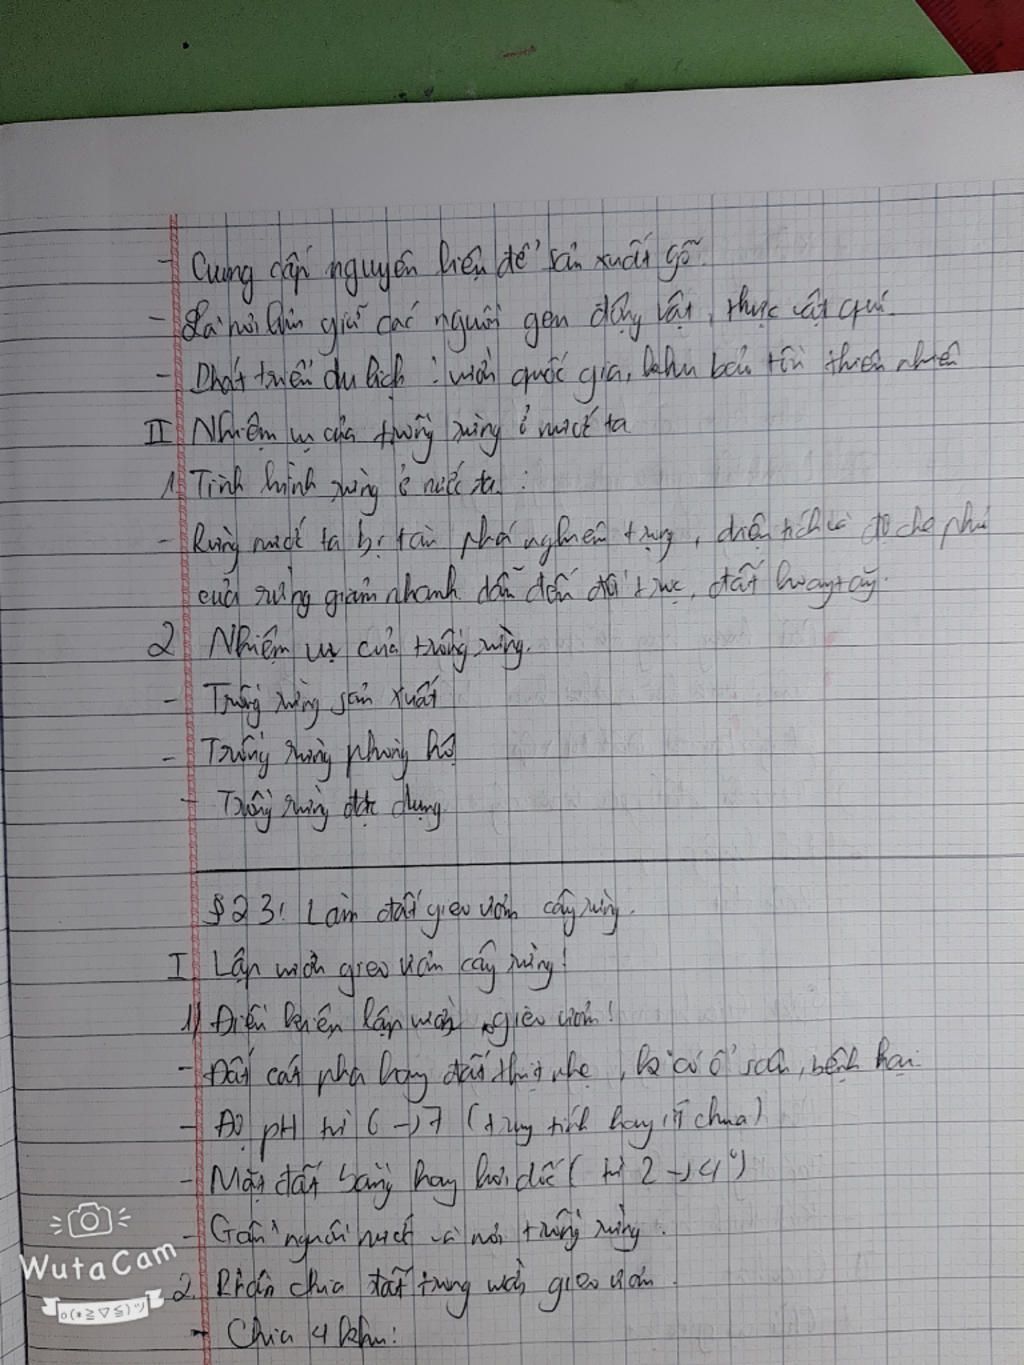 - Cung cấp nguyên liệu để sản xuất gỗ.
- Là nơi lưu giữ các nguồn gen động vật, thực vật quí.
- Phát triển du lịch : vườn quốc gia, khu bảo tồn thiên nhiên
II Nhiệm vụ của trồng rừng ở nước ta
1) Tình hình rừng ở nước ta :
- Rừng nước ta bị tàn phá nghiêm trọng, diện tích và độ che phủ
của rừng giảm nhanh dẫn đến đồi trọc, đất hoang
2 Nhiệm vụ của trồng rừng.
- Trồng rừng sản xuất
- Trồng rừng phòng hộ
- Trồng rừng đặc dụng.
§23! Làm đất gieo ươm cây rừng.
I Lập vườn gieo ươm cây rừng!
1) Điều kiện lập vườn gieo ươm!
- Đất cát pha hay đất thịt nhẹ, ko có ổ sâu, bệnh hại.
- Độ pH từ 6 -> 7 (trung tính hay ít chua)
- Mặt đất bằng hay hơi dốc ( từ 2 -> 4°)
- Gần nguồn nước và nơi trồng rừng.
2. Phân chia đất trong vườn gieo ươm.
- Chia 4 khu:
WutaCam
o(*≧▽≦)ツ